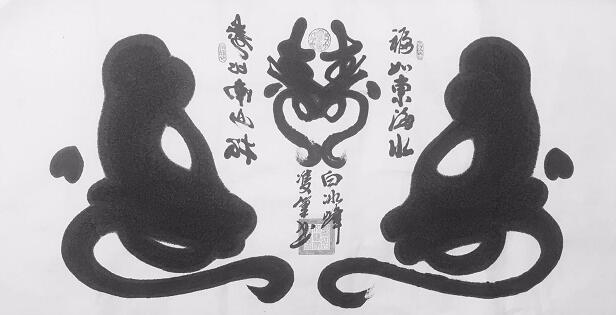 福如東海水
壽比南山松
白冰峰
雙筆書